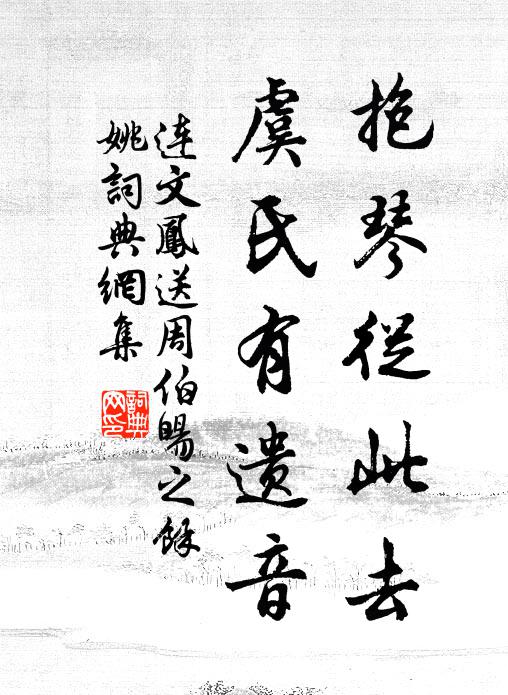 抱琴從此去
虞氏有遺音
連文鳳送周伯暘之餘
姚詞典網集
詞典
网印